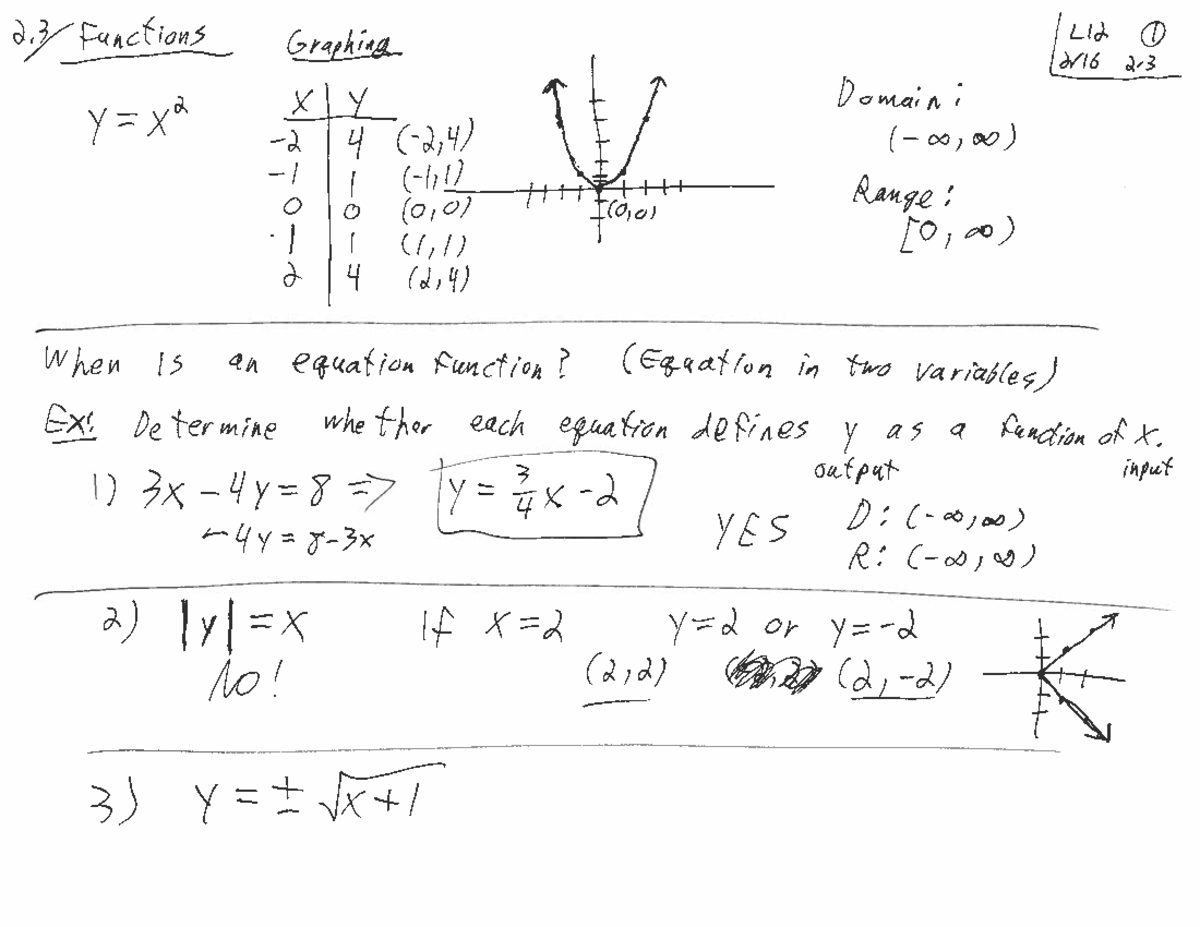 2.3/ Functions Graphing L12 ①
2/16 2.3
y = x²
x | y
-2 | 4 (-2,4)
-1 | 1 (-1,1)
0 | 0 (0,0)
1 | 1 (1,1)
2 | 4 (2,4)
(0,0)
Domain:
(-∞,∞)
Range:
[0,∞)
When is an equation function? (Equation in two variables)
Ex: Determine whether each equation defines y as a function of x.
output input
1) 3x - 4y = 8 => y = 3/4 x - 2
-4y = 8-3x
YES
D: (-∞,∞)
R: (-∞,∞)
2) |y| = x If x = 2 y = 2 or y = -2
No! (2,2) (2,-2)
3) y = ± √x+1